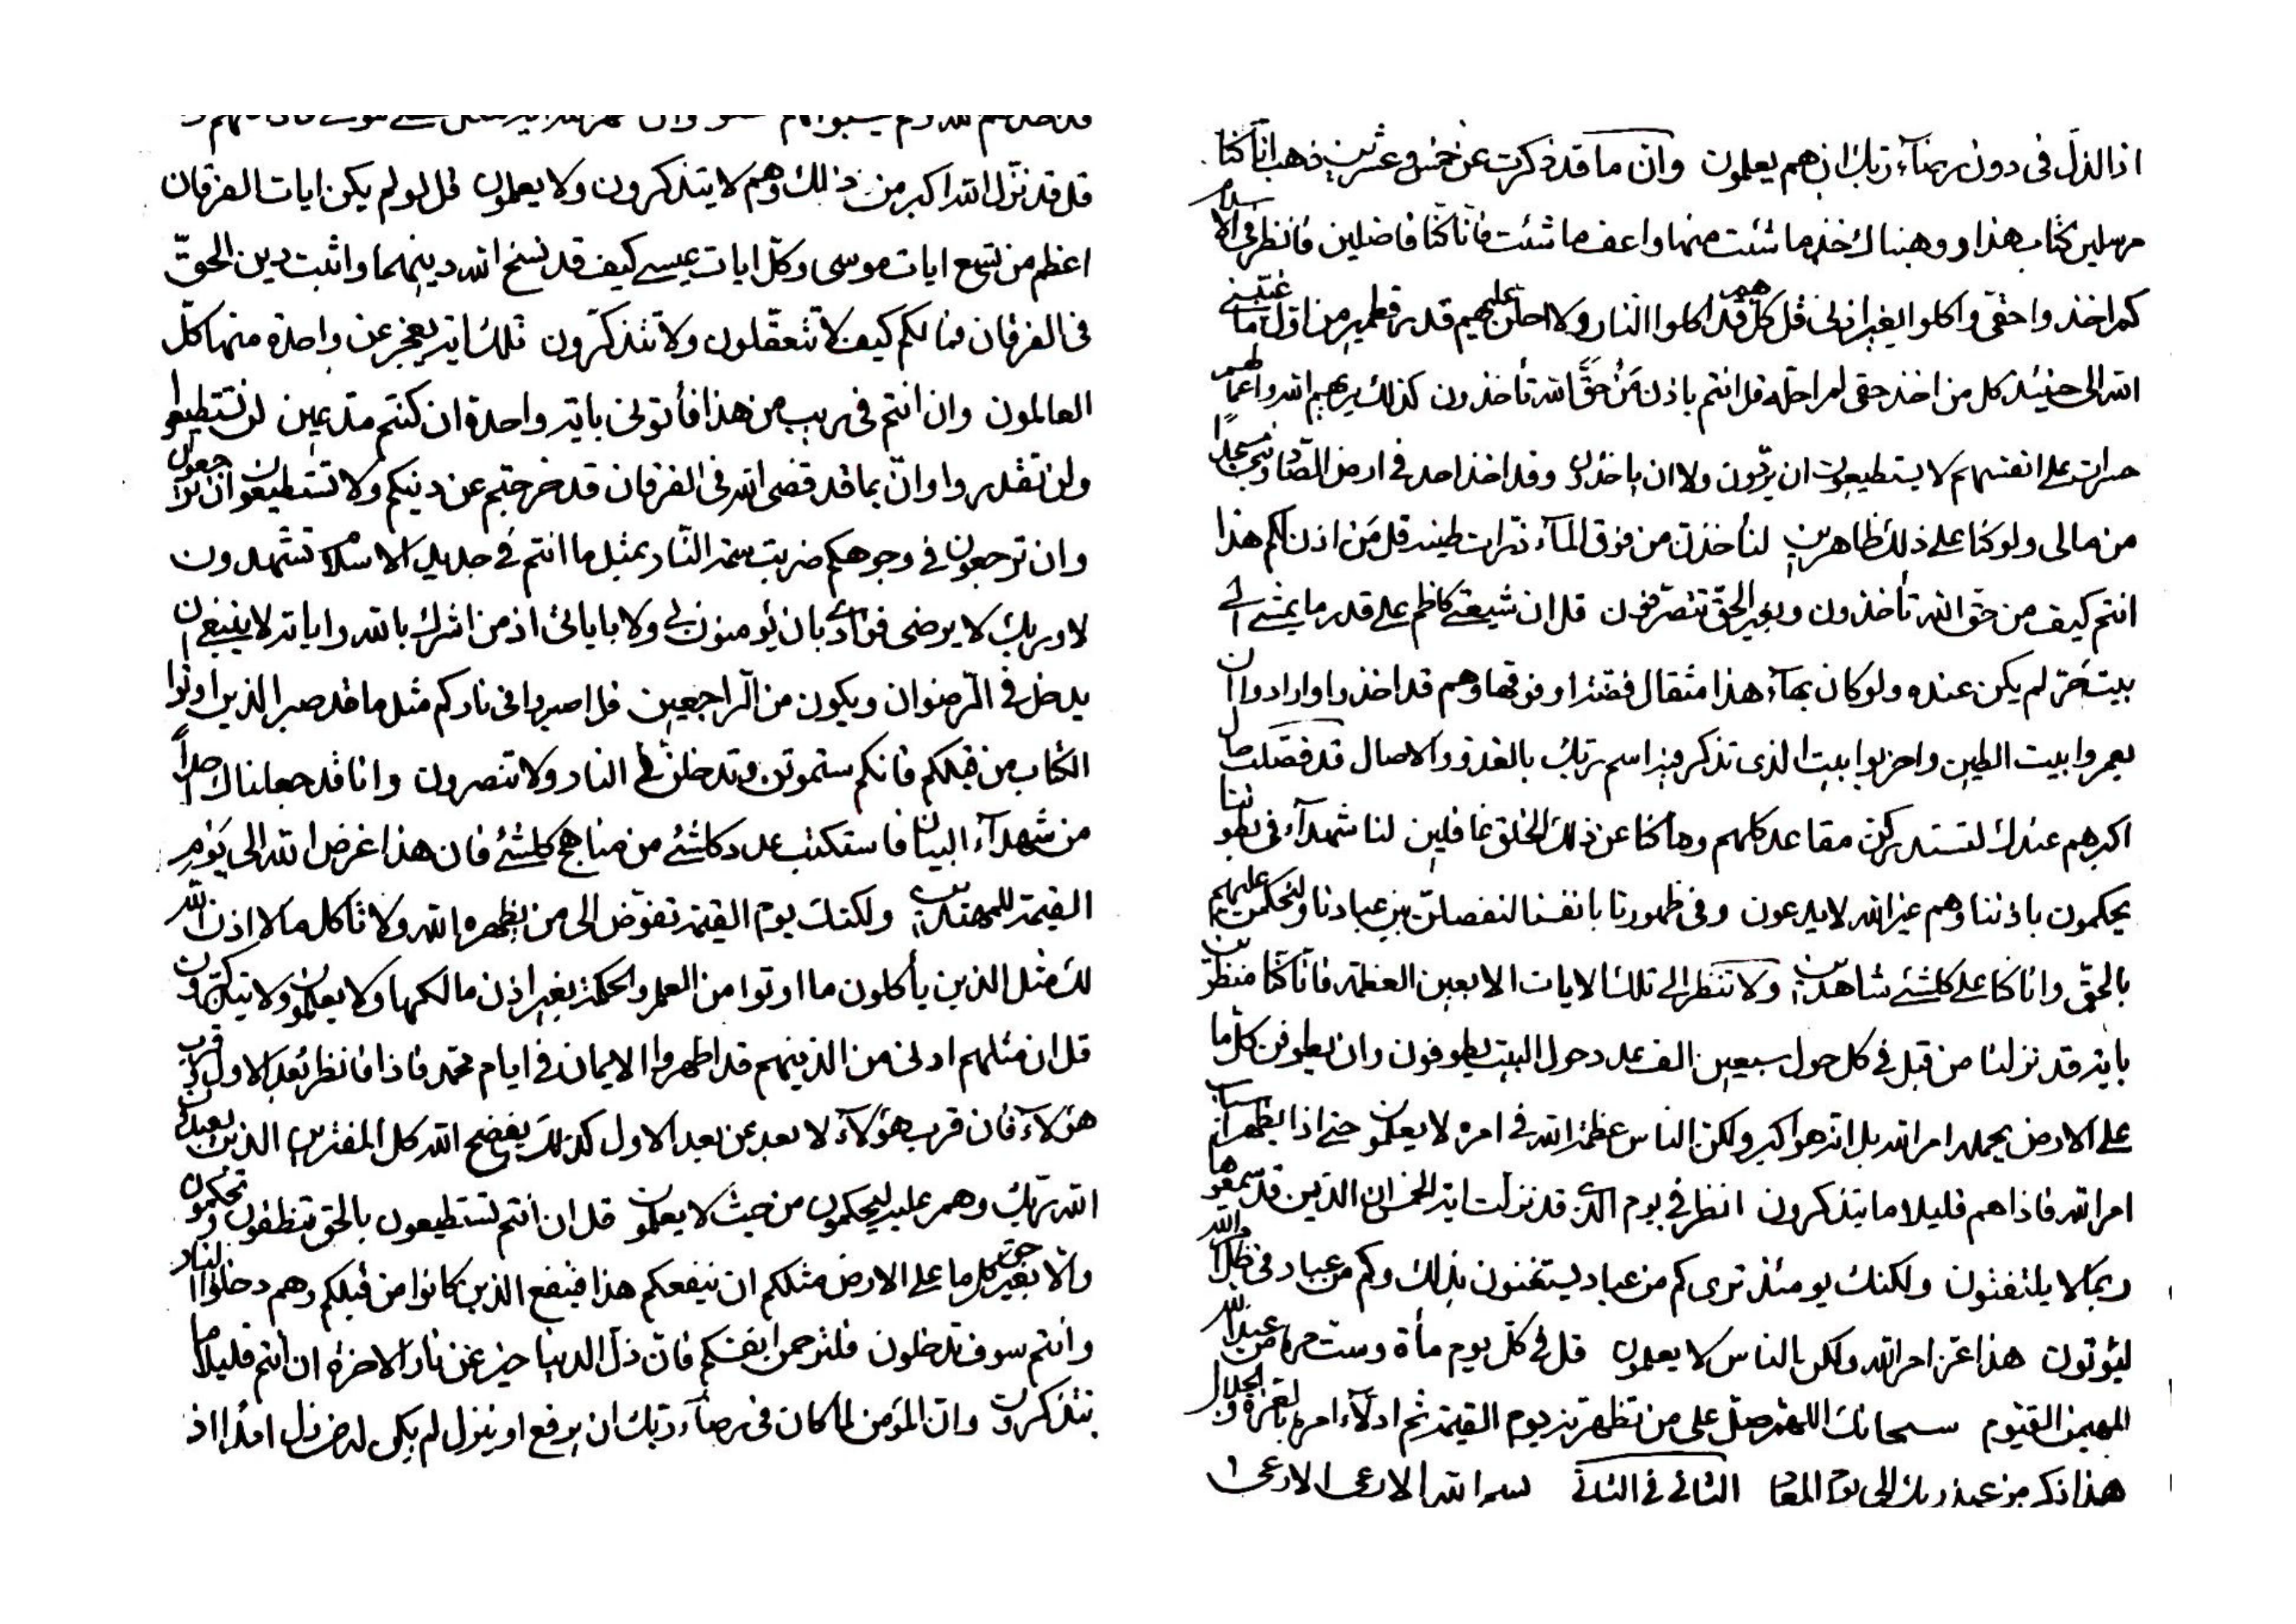 قل قد نزل الله اكبر من ذالك وهم لا يتذكرون ولا يعلمون قل لو لم يكن ايات الفرقان
اعظم من تسع ايات موسى وكل ايات عيسى كيف قد نسخ الله دينهما واثبت دين الحقّ
فى الفرقان فما لكم كيف لا تتعقّلون ولا تتذكّرون تلك اية يعجز عن واحدة منها كلّ
العالمون وان انتم فى ريب من هذا فأتونى باية واحدة ان كنتم مدّعين لن تستطيعوا
ولن تقدروا وانّ بما قد قضى الله فى الفرقان قد خرجتم عن دينكم ولا تستطيعون ان تراجعون
وان ترجعون فى وجوهكم ضربت سمة النّار بمثل ما انتم فى جديد الاسلام تشهدون
لا وربك لا يرضى فؤادى بان تؤمنون بى ولا باياتى اذ من اشرك بالله واياته لا ينبغى ان
يدخل فى الرّضوان ويكون من الرّاجعين قل اصبروا فى ناركم مثل ما قد صبر الذين اوتوا
الكتاب من قبلكم فانكم ستموتنّ وتدخلنّ فى النار ولا تنصرون وانا قد جعلناك احداً
من شهدآء البيان فاستكتب عدد كلشئ من مناهج كلشئ فان هذا غرض الله الى يوم
القيمة للمهتدين ولكنك يوم القيمة تفوّض الى من يظهره الله ولا تأكل ما لا اذن الله
لك مثل الذين يأكلون ما اوتوا من العلم والحكمة بغير اذن مالكها ولا يعلمون ولا يتذكرون
قل ان مثلهم ادنى من الذينهم قد اظهروا الايمان فى ايام محمد فاذا فانظر بُعد الاول وقرب
هؤلآء فان قرب هؤلآء لا بعد عن بعد الاول كذلك يفضح الله كل المفترين الذين يعبدون
الله ربك وهم عليه ليحكمون من حيث لا يعلمون قل ان انتم تستطيعون بالحق تنطقون وتحكمون
والا بغير حق كل ما على الارض مثلكم ان ينفعكم هذا فينفع الذين كانوا من قبلكم وهم دخلوا النار
وانتم سوف تدخلون فلترحمن انفسكم فانّ ذلّ الدنيا خير عن نار الاخرة ان انتم قليلا ما
تتذكرون وان المؤمن لما كان فى رضآء ربك ان يرفع او ينزل لم يكن له من ذل ابدا اذ
اذا لذلّ فى دون رضآء ربك ان هم يعلمون وان ما قد ذكرت عن خمس وعشرين ذهب انا كنا
مرسلين كتاب هذا ووهبناك خذ ما شئت منها واعف ما شئت فانا كنّا فاضلين فانظر فى الاسلام
كم اخذوا حقى واكلوا بغير اذنى قل كل هم قد اكلوا النار ولا احلن عليهم قدر قطمير من اول ما غيّبنى
الله الى حينئذ كل من اخذ حقى لم احله قل انتم باذن مَن حقّ الله تأخذون كذلك يريهم الله اعمالهم
حسرات على انفسهم لا يستطيعون ان يردّون ولا ان ياخذون وقد اخذ احد فى ارض الصّاد مسجداً
من مالى ولو كنا على ذلك ظاهرين لنأخذن من فوق المآء ذرّات طينه قل مَن اذن لكم هذا
انتم كيف من حق الله تأخذون وبغير الحقّ تتصرّفون قل ان شيعتى كاظم على قدر ما يمشى الى
بيت حرّ لم يكن عنده ولو كان بهآء هذا مثقال فضّة او فوقها وهم قد اخذوا وارادوا ان
يعمروا بيت الطين واخربوا بيت الذى تذكر فيه اسم ربك بالغدوّ والاصال قد فصّلت حال
اكبرهم عندك لتستدركن مقاعد كلهم وما كنا عن ذلك الخلق غافلين لنا شهدآء فى بطوننا
يحكمون باذننا وهم غير الله لا يدعون وفى ظهورنا بانفسنا لنفصلنّ بين عبادنا ولنحكمن عليهم
بالحقّ وانا كنا على كلشئ شاهدين ولا تنظر الى تلك الايات الا بعين العظمة فانا كنّا منظرين
باية قد نزلنا من قبل فى كل حول سبعين الف عدد حول البيت يطوفون وان يطوفن كلّ ما
على الارض يحملها امر الله بل انه هو اكبر ولكن الناس عظمة الله فى امره لا يعلمون حتى اذا يظهر اسباب
امر الله فاذا هم قليلا ما يتذكرون انظر فى يوم الذى قد نزلت اية الخمس ان الذين قد سمعوها
ربما لا يلتفتون ولكنك يومئذ ترى كم من عباد يستغنون بذلك وكم من عباد فى ظل الله
ليؤتون هذا عزّ امر الله ولكن الناس لا يعلمون قل فى كلّ يوم مأة وست مرة من عند الله
المهيمن القيّوم سبحانك اللهم صلّ على من تظهرنه يوم القيمة ثم ادلّاء امره بالعزة والجلال
هذا ذكر من عند ربك الى يوم المعاد الثانى فى الثانى بسم الله الارعى الارعى